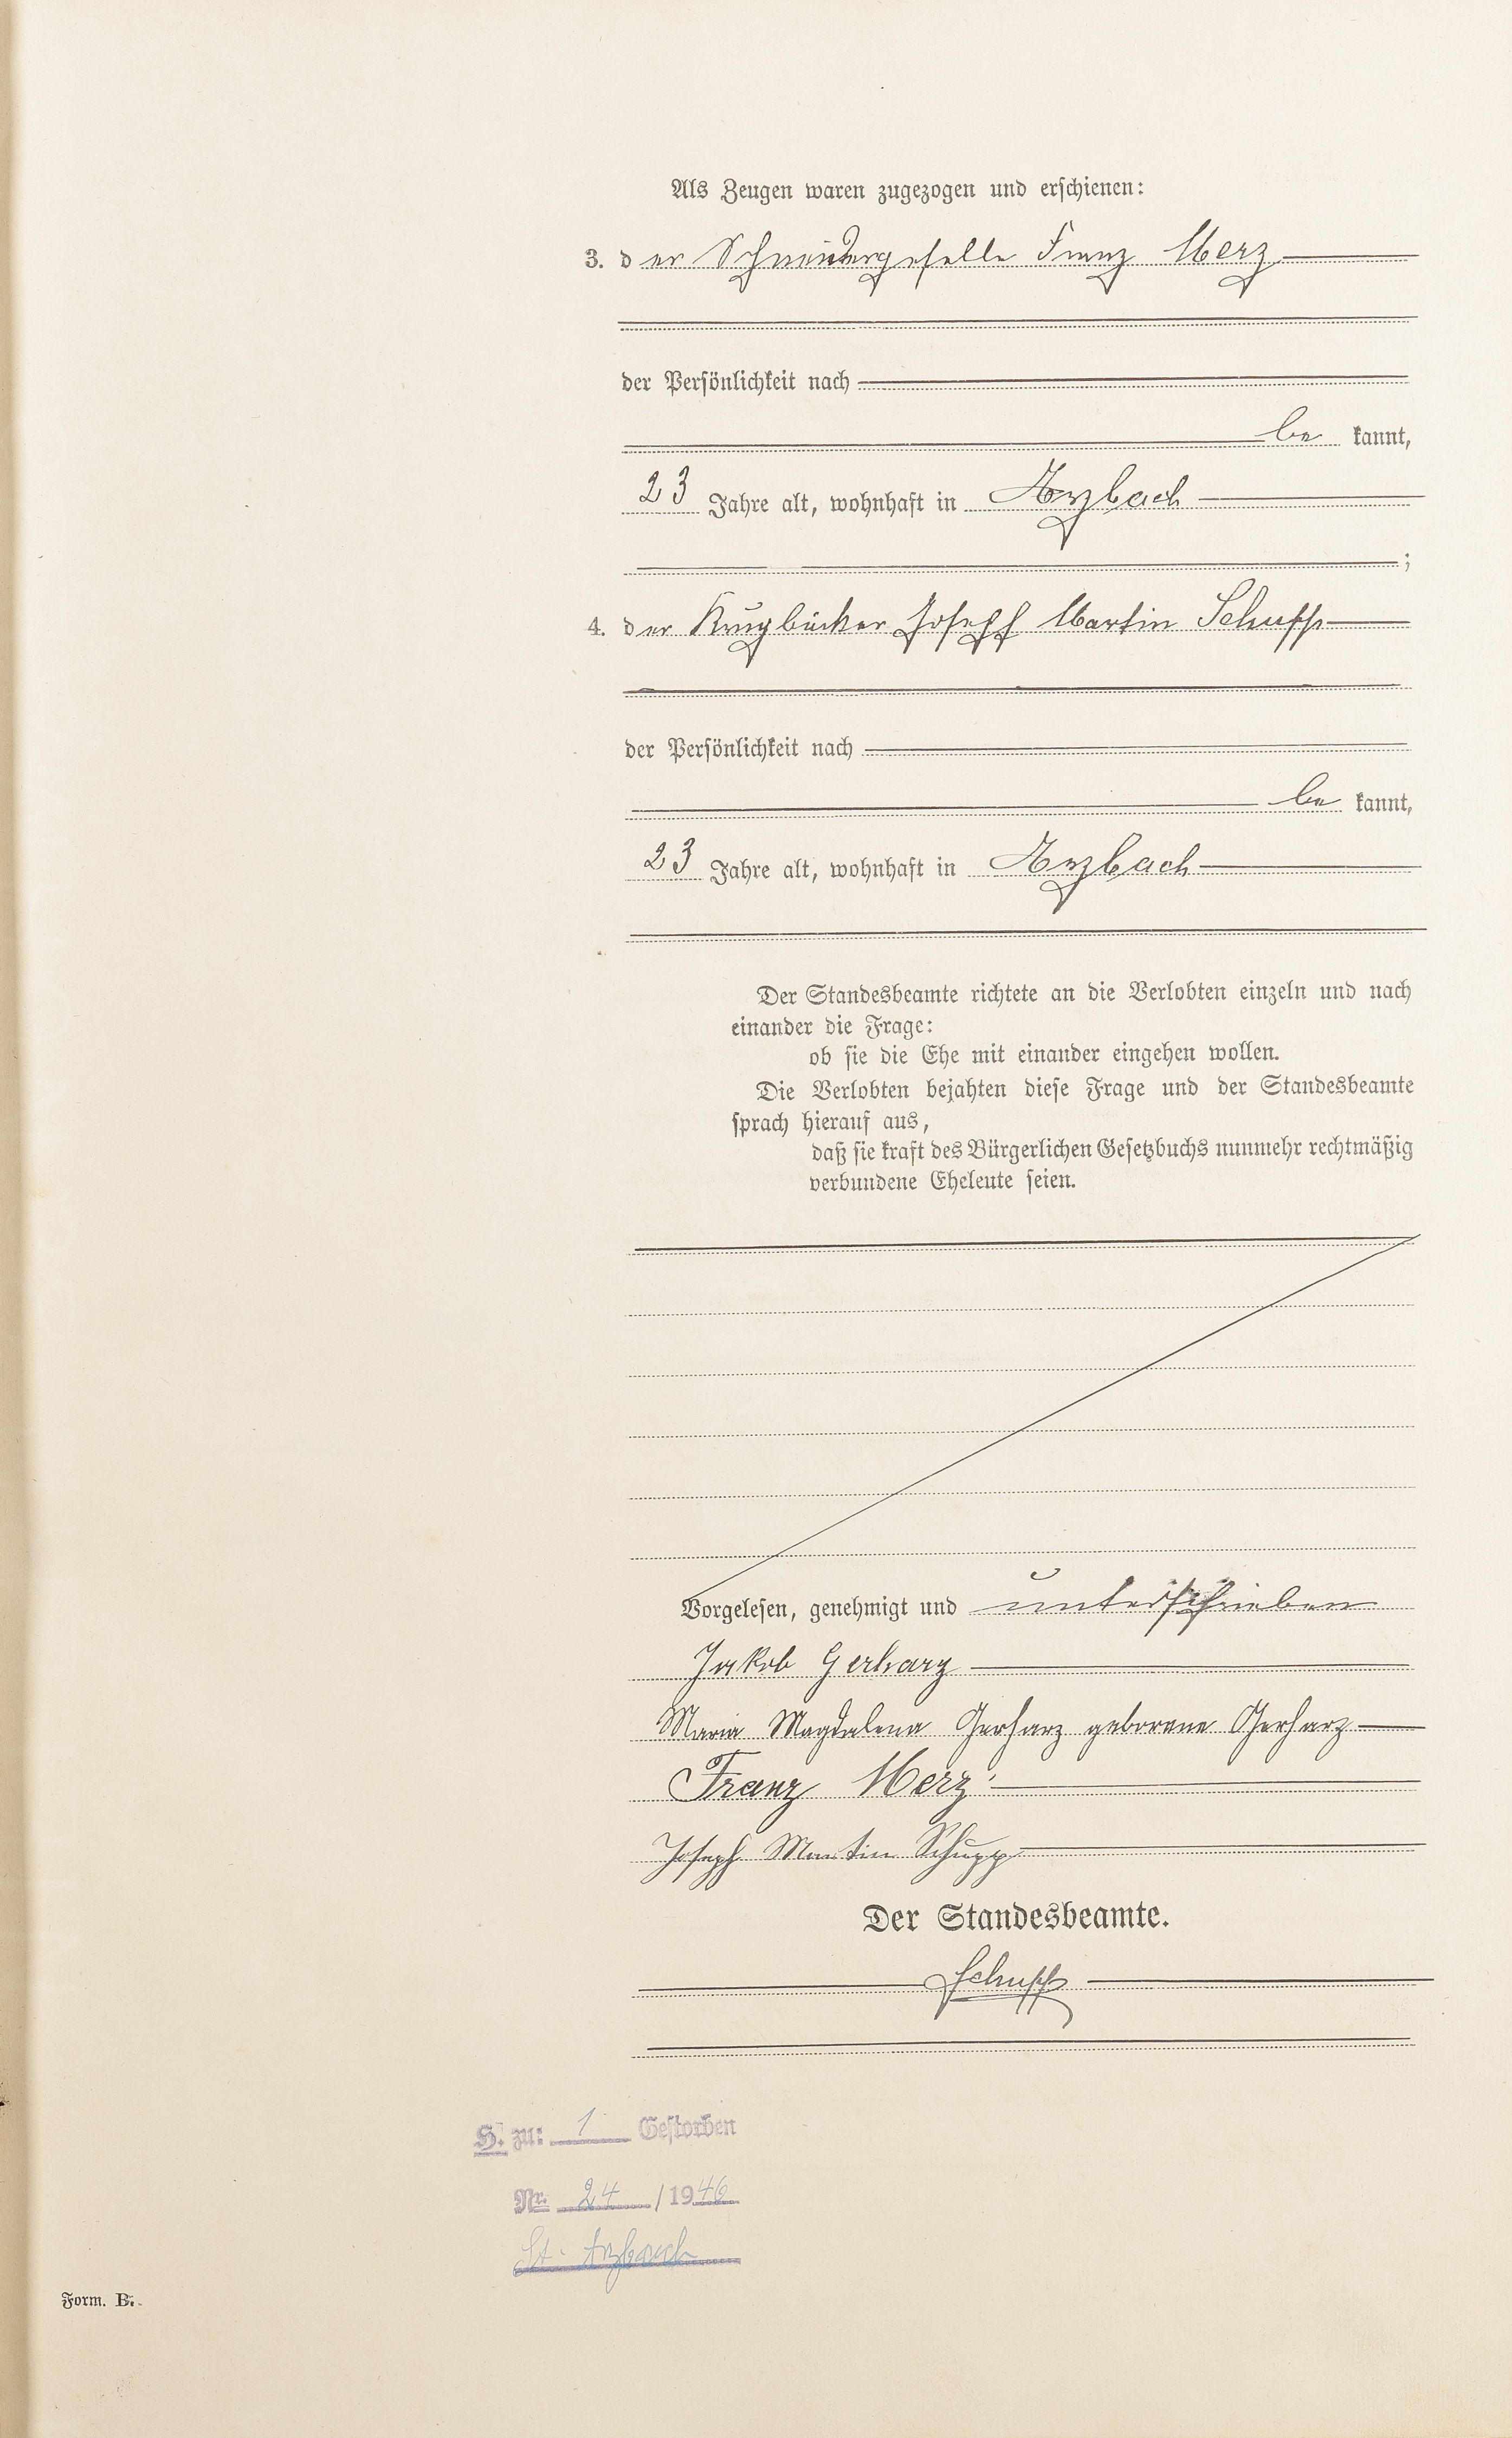 Als Zeugen waren zugezogen und erschienen:
3. der Schneidergeselle Franz Merz
der Persönlichkeit nach
be kannt,
23 Jahre alt, wohnhaft in Arzbach
;
4. der Krugbäcker Joseph Martin Schupp
der Persönlichkeit nach
be kannt,
23 Jahre alt, wohnhaft in Arzbach
Der Standesbeamte richtete an die Verlobten einzeln und nach
einander die Frage:
ob sie die Ehe mit einander eingehen wollen.
Die Verlobten bejahten diese Frage und der Standesbeamte
sprach hierauf aus,
daß sie kraft des Bürgerlichen Gesetzbuchs nunmehr rechtmäßig
verbundene Eheleute seien.
Vorgelesen, genehmigt und unterschrieben
Jakob Gerharz
Maria Magdalena Gerharz geborene Gerharz
Franz Merz
Joseph Martin Schupp
Der Standesbeamte.
Schupp
H. zu: 1 Gestorben
Nr. 24 / 1946
St. Arzbach
Form. B.